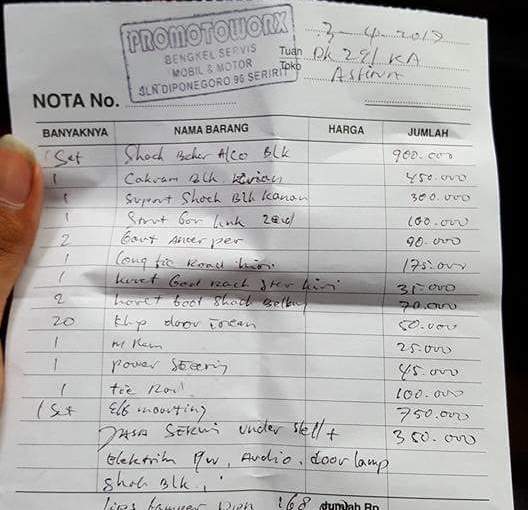 PROMOTOWORX
BENGKEL SERVIS
MOBIL & MOTOR
JLN DIPONEGORO 96 SERIRIT
3-4-2017
Tuan DK 291 KA
Toko
NOTA No.
BANYAKNYA NAMA BARANG HARGA JUMLAH
1 Set Shock Beker A/Co Blk 900.000
1 Cakram Blk 450.000
1 Suport Shock Blk Kanan 300.000
1 Link 100.000
2 per 90.000
1 Long tie Road kiri 175.000
1 karet Boot Rack Ster kiri 35.000
2 karet boot Shock 70.000
20 klip door 50.000
1 M Rem 25.000
1 power Steering 45.000
1 tie Rod 100.000
1 Set E/G mounting 750.000
JASA SERVIS under Stell + 350.000
Elektrik P/W, Audio, door lamp
Shock Blk.
168 Jumlah Rp.